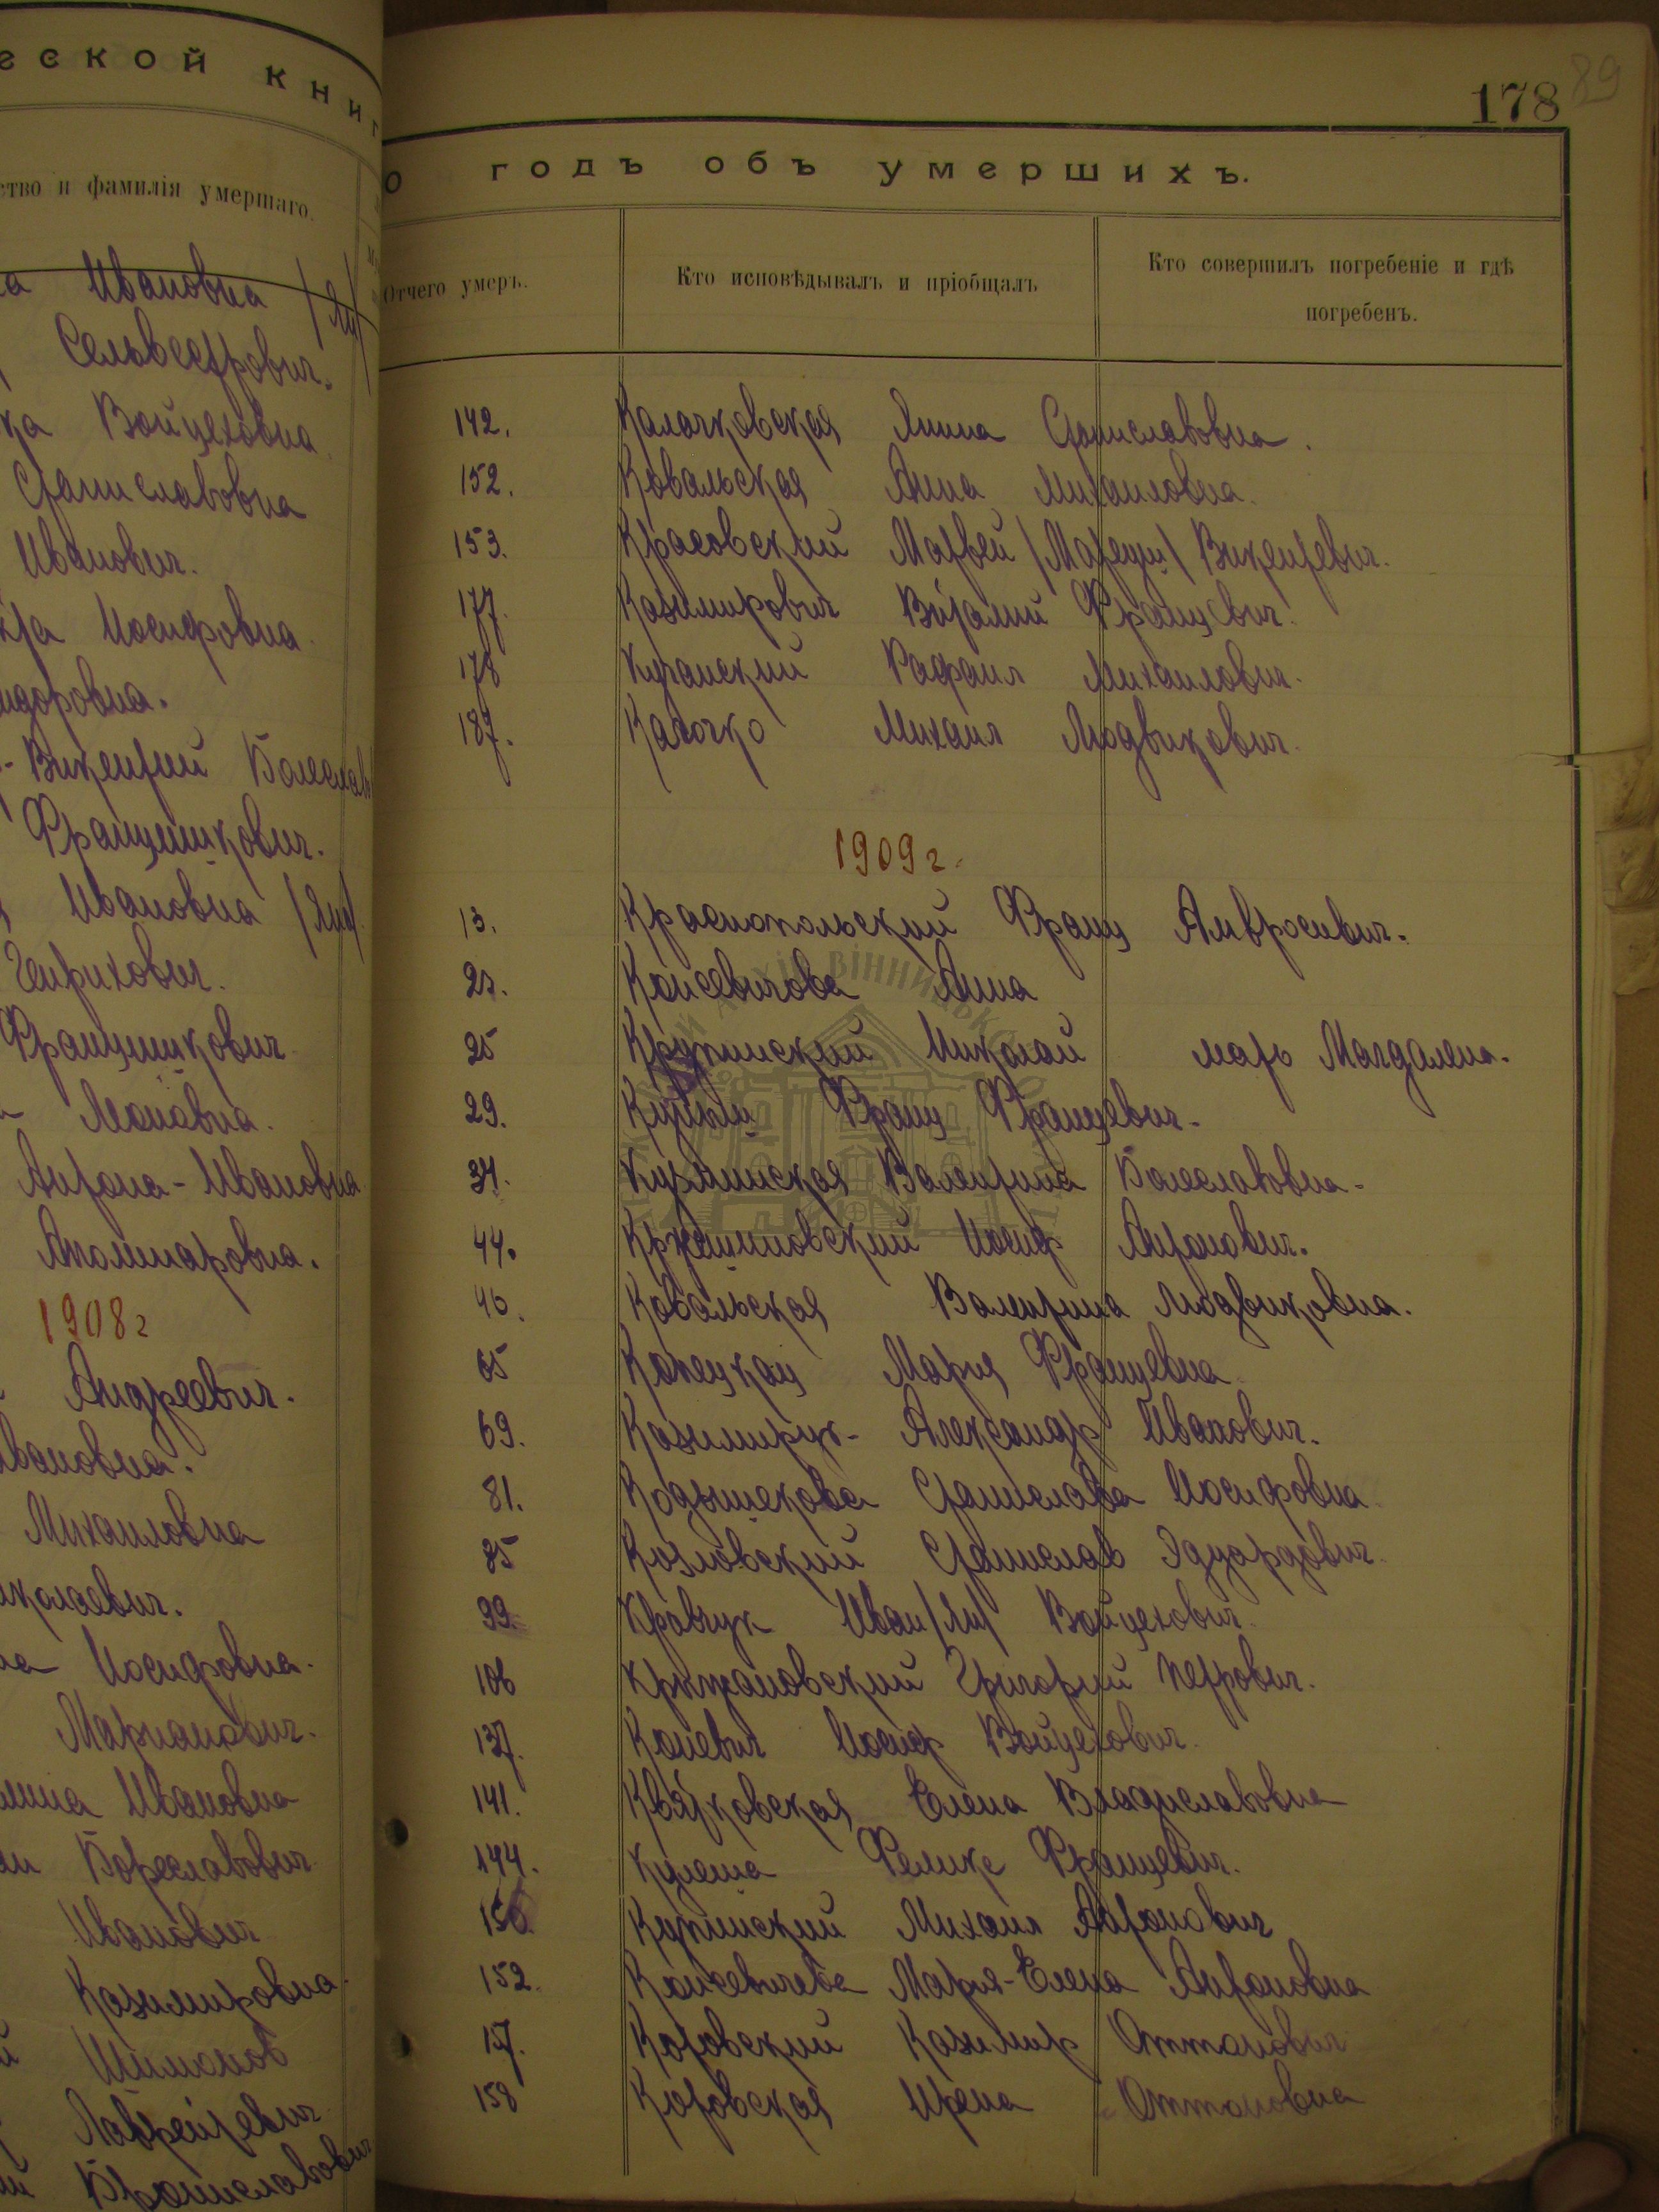 еской книг
ство и фамилія умершаго.
Ивановна
Сельвестрович.
Войцеховна
Станиславовна
Иванович.
Иосифовна
Викентий Болеслав
Францишкович.
Ивановна
Генрихович.
Францишкович
Антона-Ивановна
Аполинаровна.
1908 г
Андреевич.
Михаиловна
Иосифовна.
Марианович.
Ивановна
Иванович
Казимировна.
Шимонов
Лаврентевич
Брониславович
178
89
о годъ объ умершихъ.
Отчего умеръ.
Кто исповѣдывалъ и пріобщалъ
Кто совершилъ погребеніе и гдѣ
погребенъ.
142. Калачковская Янина Станиславовна.
152. Ковальская Анна Михаиловна.
153. Красовский Матвей /Матеуш/ Викентевич.
177. Казимирович Виталий Францевич.
178 Кучанский Рафаил Михаилович.
187. Качочко Михаил Людвикович.
1909 г.
13. Краснопольский Франц Амвросиевич.
23. Консевичова Анна
25 Крупинский Николай мать Магдалена.
29. Франц Францевич.
34. Кузминская Валентина Болеславовна.
44. Кржешновский Иосиф Антонович.
46. Ковальская Валентина Людвиковна.
65 Мария Францевна.
69. Казимирук Александр Иванович.
81. Кодымскова Станислава Иосифовна.
85 Козловский Станислав Эдуардович.
99. Кравчук Иван /Ян/ Войцехович.
106 Крыжановский Григорий Петрович.
137. Каневич Иосиф Войцехович.
141. Квятковская Елена Владиславовна
144. Кулеша Феликс Францевич.
150. Купинский Михаил Антонович
152. Консевичева Мария-Елена Антоновна
157. Котовский Казимир Оттонович
158 Котовская Ирена Оттоновна